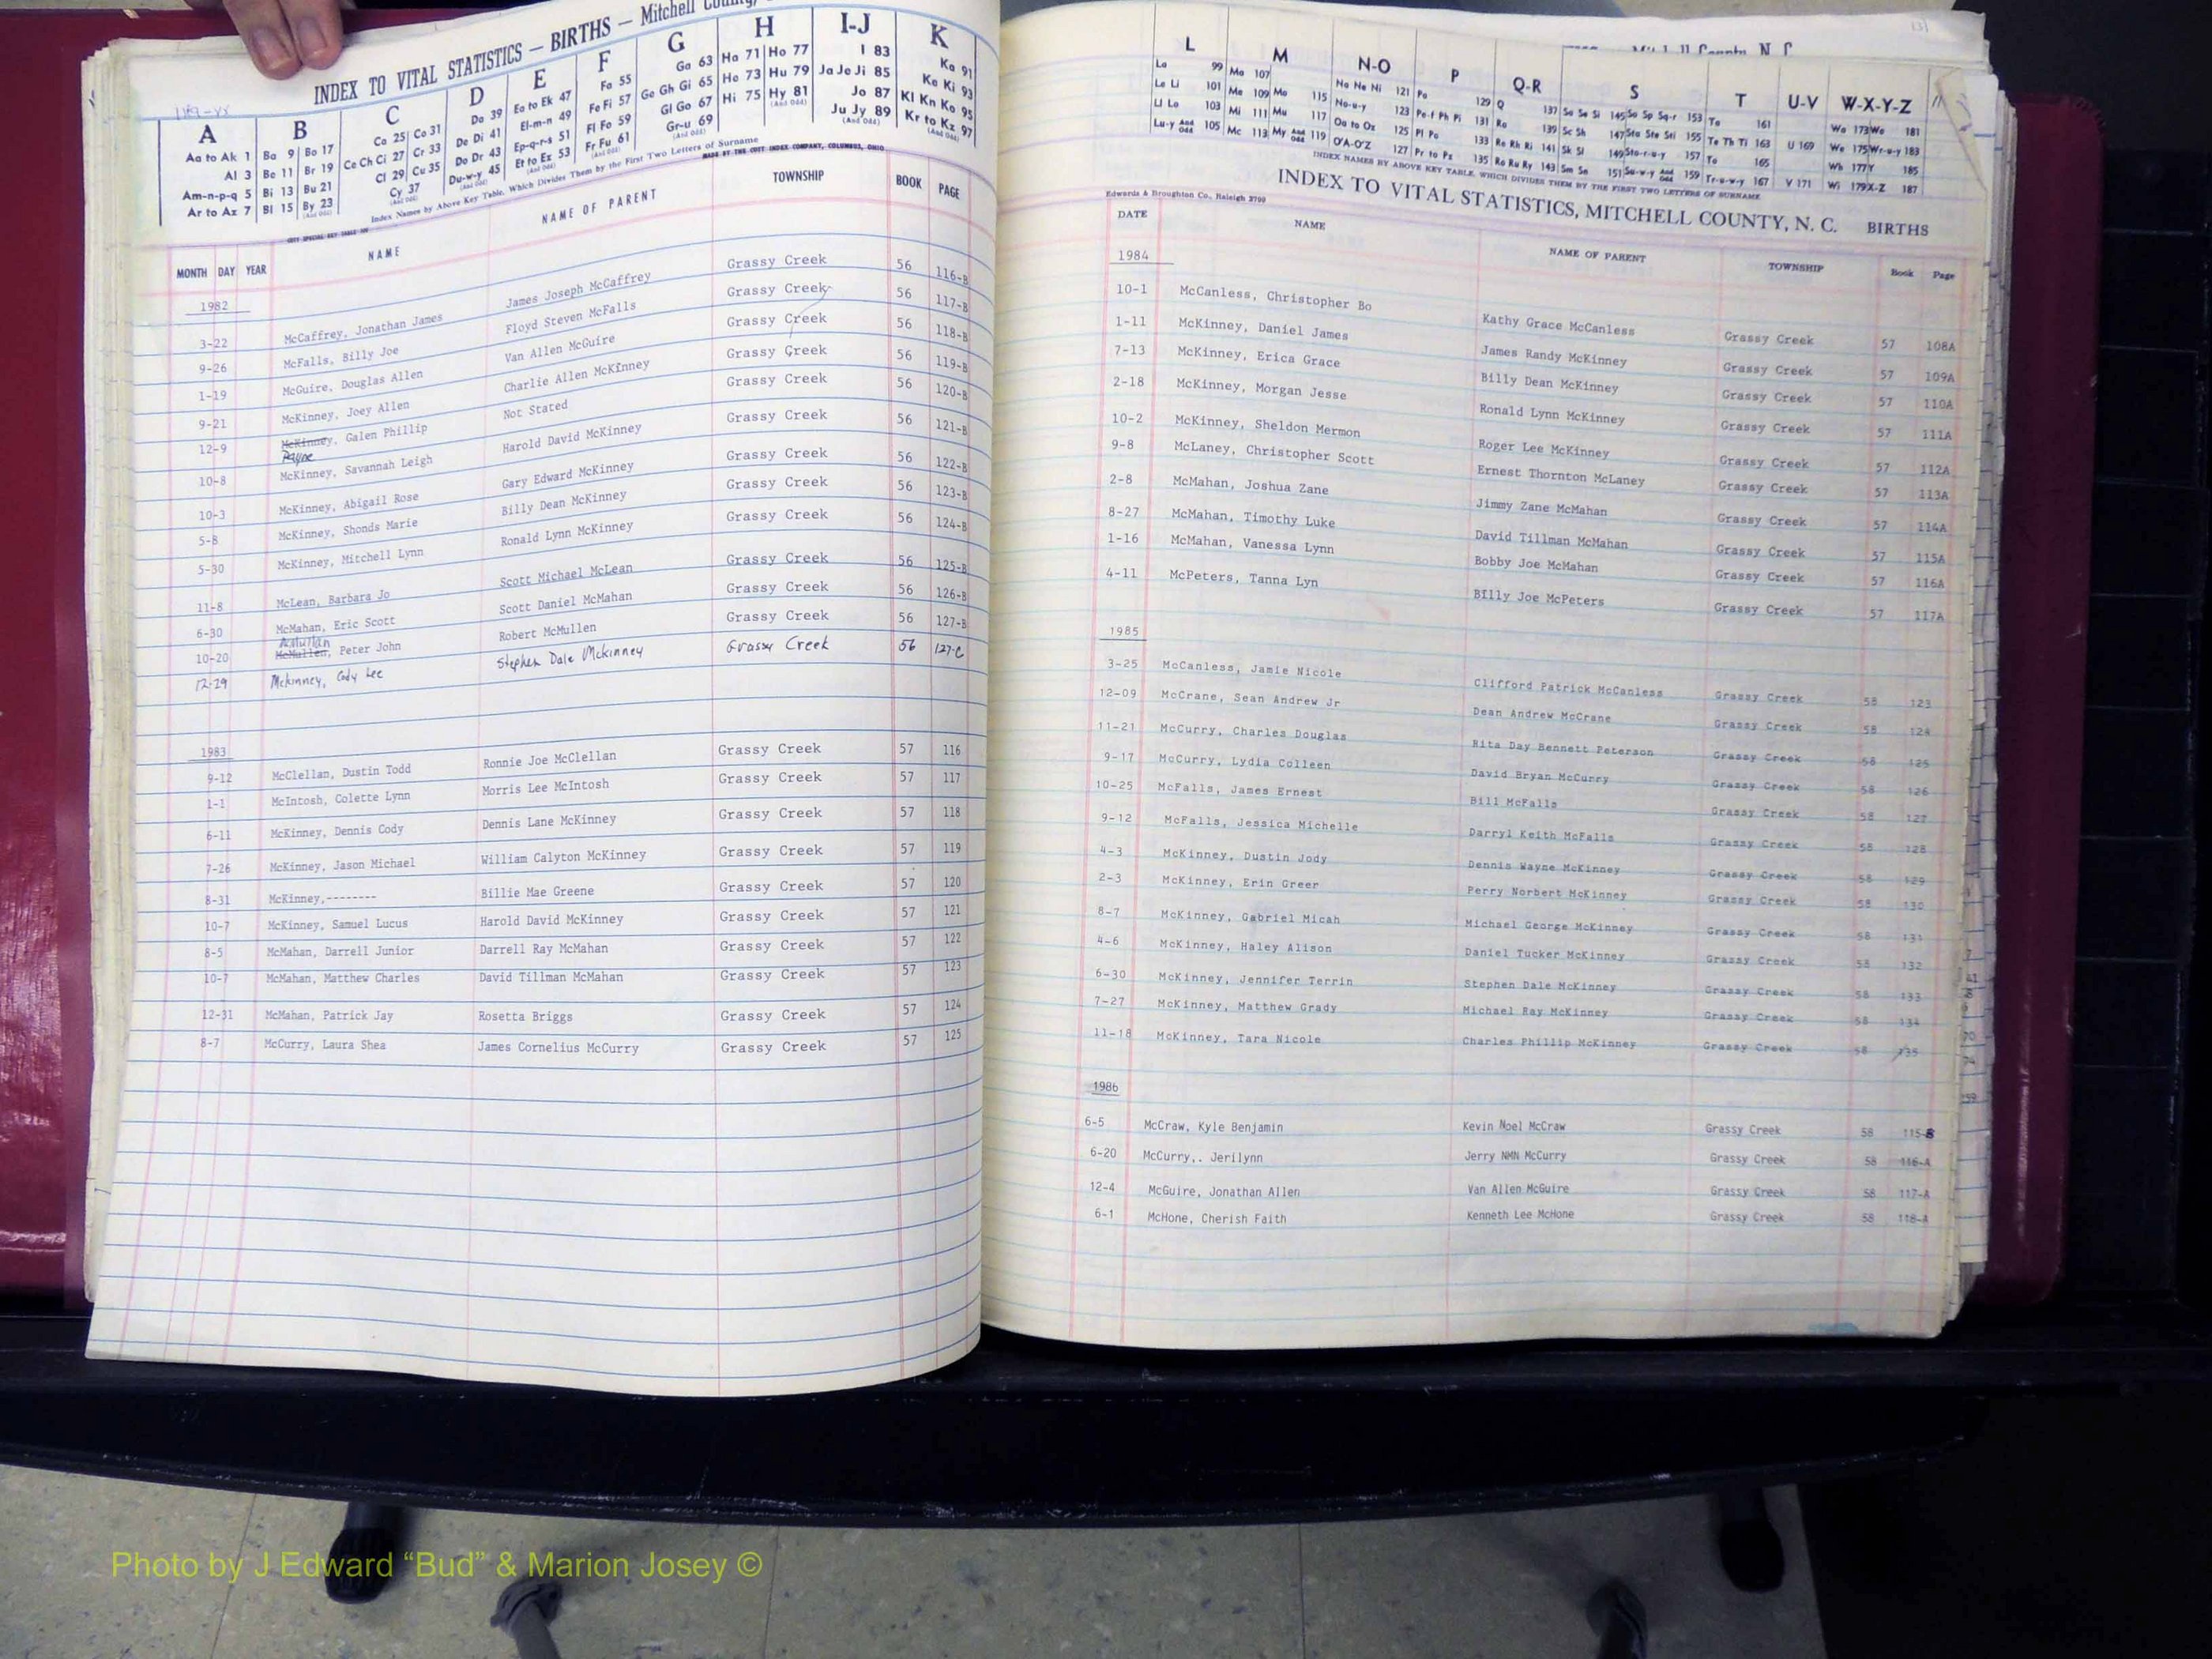 INDEX TO VITAL STATISTICS — BIRTHS — Mitchell County,
A B C D E F G H I-J K
Aa to Ak 1 Ba 9 Bo 17 Ca 25 Co 31 Da 39 Ea to Ek 47 Fa 55 Ga 63 Ha 71 Ho 77 I 83 Ka 91
Al 3 Be 11 Br 19 Ce Ch Ci 27 Cr 33 De Di 41 El-m-n 49 Fe Fi 57 Ge Gh Gi 65 He 73 Hu 79 Ja Je Ji 85 Ke Ki 93
Am-n-p-q 5 Bi 13 Bu 21 Cl 29 Cu 35 Do Dr 43 Ep-q-r-s 51 Fl Fo 59 Gl Go 67 Hi 75 Hy 81 Jo 87 Kl Kn Ko 95
Ar to Az 7 Bl 15 By 23 Cy 37 Du-w-y 45 Et to Ez 53 Fr Fu 61 Gr-u 69 Ju Jy 89 Kr to Kz 97
Index Names by Above Key Table, Which Divides Them by the First Two Letters of Surname
MADE BY THE COTT INDEX COMPANY, COLUMBUS, OHIO
MONTH DAY YEAR NAME NAME OF PARENT TOWNSHIP BOOK PAGE
1982
3-22 McCaffrey, Jonathan James James Joseph McCaffrey Grassy Creek 56 116-B
9-26 McFalls, Billy Joe Floyd Steven McFalls Grassy Creek 56 117-B
1-19 McGuire, Douglas Allen Van Allen McGuire Grassy Creek 56 118-B
9-21 McKinney, Joey Allen Charlie Allen McKinney Grassy Creek 56 119-B
12-9 McKinney, Galen Phillip Not Stated Grassy Creek 56 120-B
Payne
10-8 McKinney, Savannah Leigh Harold David McKinney Grassy Creek 56 121-B
10-3 McKinney, Abigail Rose Gary Edward McKinney Grassy Creek 56 122-B
5-8 McKinney, Shonds Marie Billy Dean McKinney Grassy Creek 56 123-B
5-30 McKinney, Mitchell Lynn Ronald Lynn McKinney Grassy Creek 56 124-B
11-8 McLean, Barbara Jo Scott Michael McLean Grassy Creek 56 125-B
6-30 McMahan, Eric Scott Scott Daniel McMahan Grassy Creek 56 126-B
10-20 McMullen, Peter John Robert McMullen Grassy Creek 56 127-B
12-29 McKinney, Cody Lee Stephen Dale McKinney Grassy Creek 56 127-C
1983
9-12 McClellan, Dustin Todd Ronnie Joe McClellan Grassy Creek 57 116
1-1 McIntosh, Colette Lynn Morris Lee McIntosh Grassy Creek 57 117
6-11 McKinney, Dennis Cody Dennis Lane McKinney Grassy Creek 57 118
7-26 McKinney, Jason Michael William Calyton McKinney Grassy Creek 57 119
8-31 McKinney,-------- Billie Mae Greene Grassy Creek 57 120
10-7 McKinney, Samuel Lucus Harold David McKinney Grassy Creek 57 121
8-5 McMahan, Darrell Junior Darrell Ray McMahan Grassy Creek 57 122
10-7 McMahan, Matthew Charles David Tillman McMahan Grassy Creek 57 123
12-31 McMahan, Patrick Jay Rosetta Briggs Grassy Creek 57 124
8-7 McCurry, Laura Shea James Cornelius McCurry Grassy Creek 57 125
Mitchell County N C
L M N-O P Q-R S T U-V W-X-Y-Z
La 99 Ma 107 Na Ne Ni 121 Pa 129 Q 137 Sa Se Si 145 So Sp Sq-r 153 Ta 161 Wa 173 Wo 181
Le Li 101 Me 109 Mo 115 No-u-y 123 Pe-f Ph Pi 131 Ra 139 Sc Sh 147 Sta Ste Sti 155 Te Th Ti 163 U 169 We 175 Wr-u-y 183
Ll Lo 103 Mi 111 Mu 117 Oa to Oz 125 Pl Po 133 Re Rh Ri 141 Sk Sl 149 Sto-r-u-y 157 To 165 Wh 177 Y 185
Lu-y And Odd 105 Mc 113 My And Odd 119 O'A-O'Z 127 Pr to Pz 135 Ro Ru Ry 143 Sm Sn 151 Su-w-y And Odd 159 Tr-u-w-y 167 V 171 Wi 179 X-Z 187
INDEX NAMES BY ABOVE KEY TABLE, WHICH DIVIDES THEM BY THE FIRST TWO LETTERS OF SURNAME
Edwards & Broughton Co., Raleigh 2799
INDEX TO VITAL STATISTICS, MITCHELL COUNTY, N. C. BIRTHS
DATE NAME NAME OF PARENT TOWNSHIP Book Page
1984
10-1 McCanless, Christopher Bo Kathy Grace McCanless Grassy Creek 57 108A
1-11 McKinney, Daniel James James Randy McKinney Grassy Creek 57 109A
7-13 McKinney, Erica Grace Billy Dean McKinney Grassy Creek 57 110A
2-18 McKinney, Morgan Jesse Ronald Lynn McKinney Grassy Creek 57 111A
10-2 McKinney, Sheldon Mermon Roger Lee McKinney Grassy Creek 57 112A
9-8 McLaney, Christopher Scott Ernest Thornton McLaney Grassy Creek 57 113A
2-8 McMahan, Joshua Zane Jimmy Zane McMahan Grassy Creek 57 114A
8-27 McMahan, Timothy Luke David Tillman McMahan Grassy Creek 57 115A
1-16 McMahan, Vanessa Lynn Bobby Joe McMahan Grassy Creek 57 116A
4-11 McPeters, Tanna Lyn Billy Joe McPeters Grassy Creek 57 117A
1985
3-25 McCanless, Jamie Nicole Clifford Patrick McCanless Grassy Creek 58 123
12-09 McCrane, Sean Andrew Jr Dean Andrew McCrane Grassy Creek 58 124
11-21 McCurry, Charles Douglas Rita Day Bennett Peterson Grassy Creek 58 125
9-17 McCurry, Lydia Colleen David Bryan McCurry Grassy Creek 58 126
10-25 McFalls, James Ernest Bill McFalls Grassy Creek 58 127
9-12 McFalls, Jessica Michelle Darryl Keith McFalls Grassy Creek 58 128
4-3 McKinney, Dustin Jody Dennis Wayne McKinney Grassy Creek 58 129
2-3 McKinney, Erin Greer Perry Norbert McKinney Grassy Creek 58 130
8-7 McKinney, Gabriel Micah Michael George McKinney Grassy Creek 58 131
4-6 McKinney, Haley Alison Daniel Tucker McKinney Grassy Creek 58 132
6-30 McKinney, Jennifer Terrin Stephen Dale McKinney Grassy Creek 58 133
7-27 McKinney, Matthew Grady Michael Ray McKinney Grassy Creek 58 134
11-18 McKinney, Tara Nicole Charles Phillip McKinney Grassy Creek 58 135
1986
6-5 McCraw, Kyle Benjamin Kevin Noel McCraw Grassy Creek 58 115-B
6-20 McCurry,. Jerilynn Jerry NMN McCurry Grassy Creek 58 116-A
12-4 McGuire, Jonathan Allen Van Allen McGuire Grassy Creek 58 117-A
6-1 McHone, Cherish Faith Kenneth Lee McHone Grassy Creek 58 118-A
Photo by J Edward “Bud” & Marion Josey ©